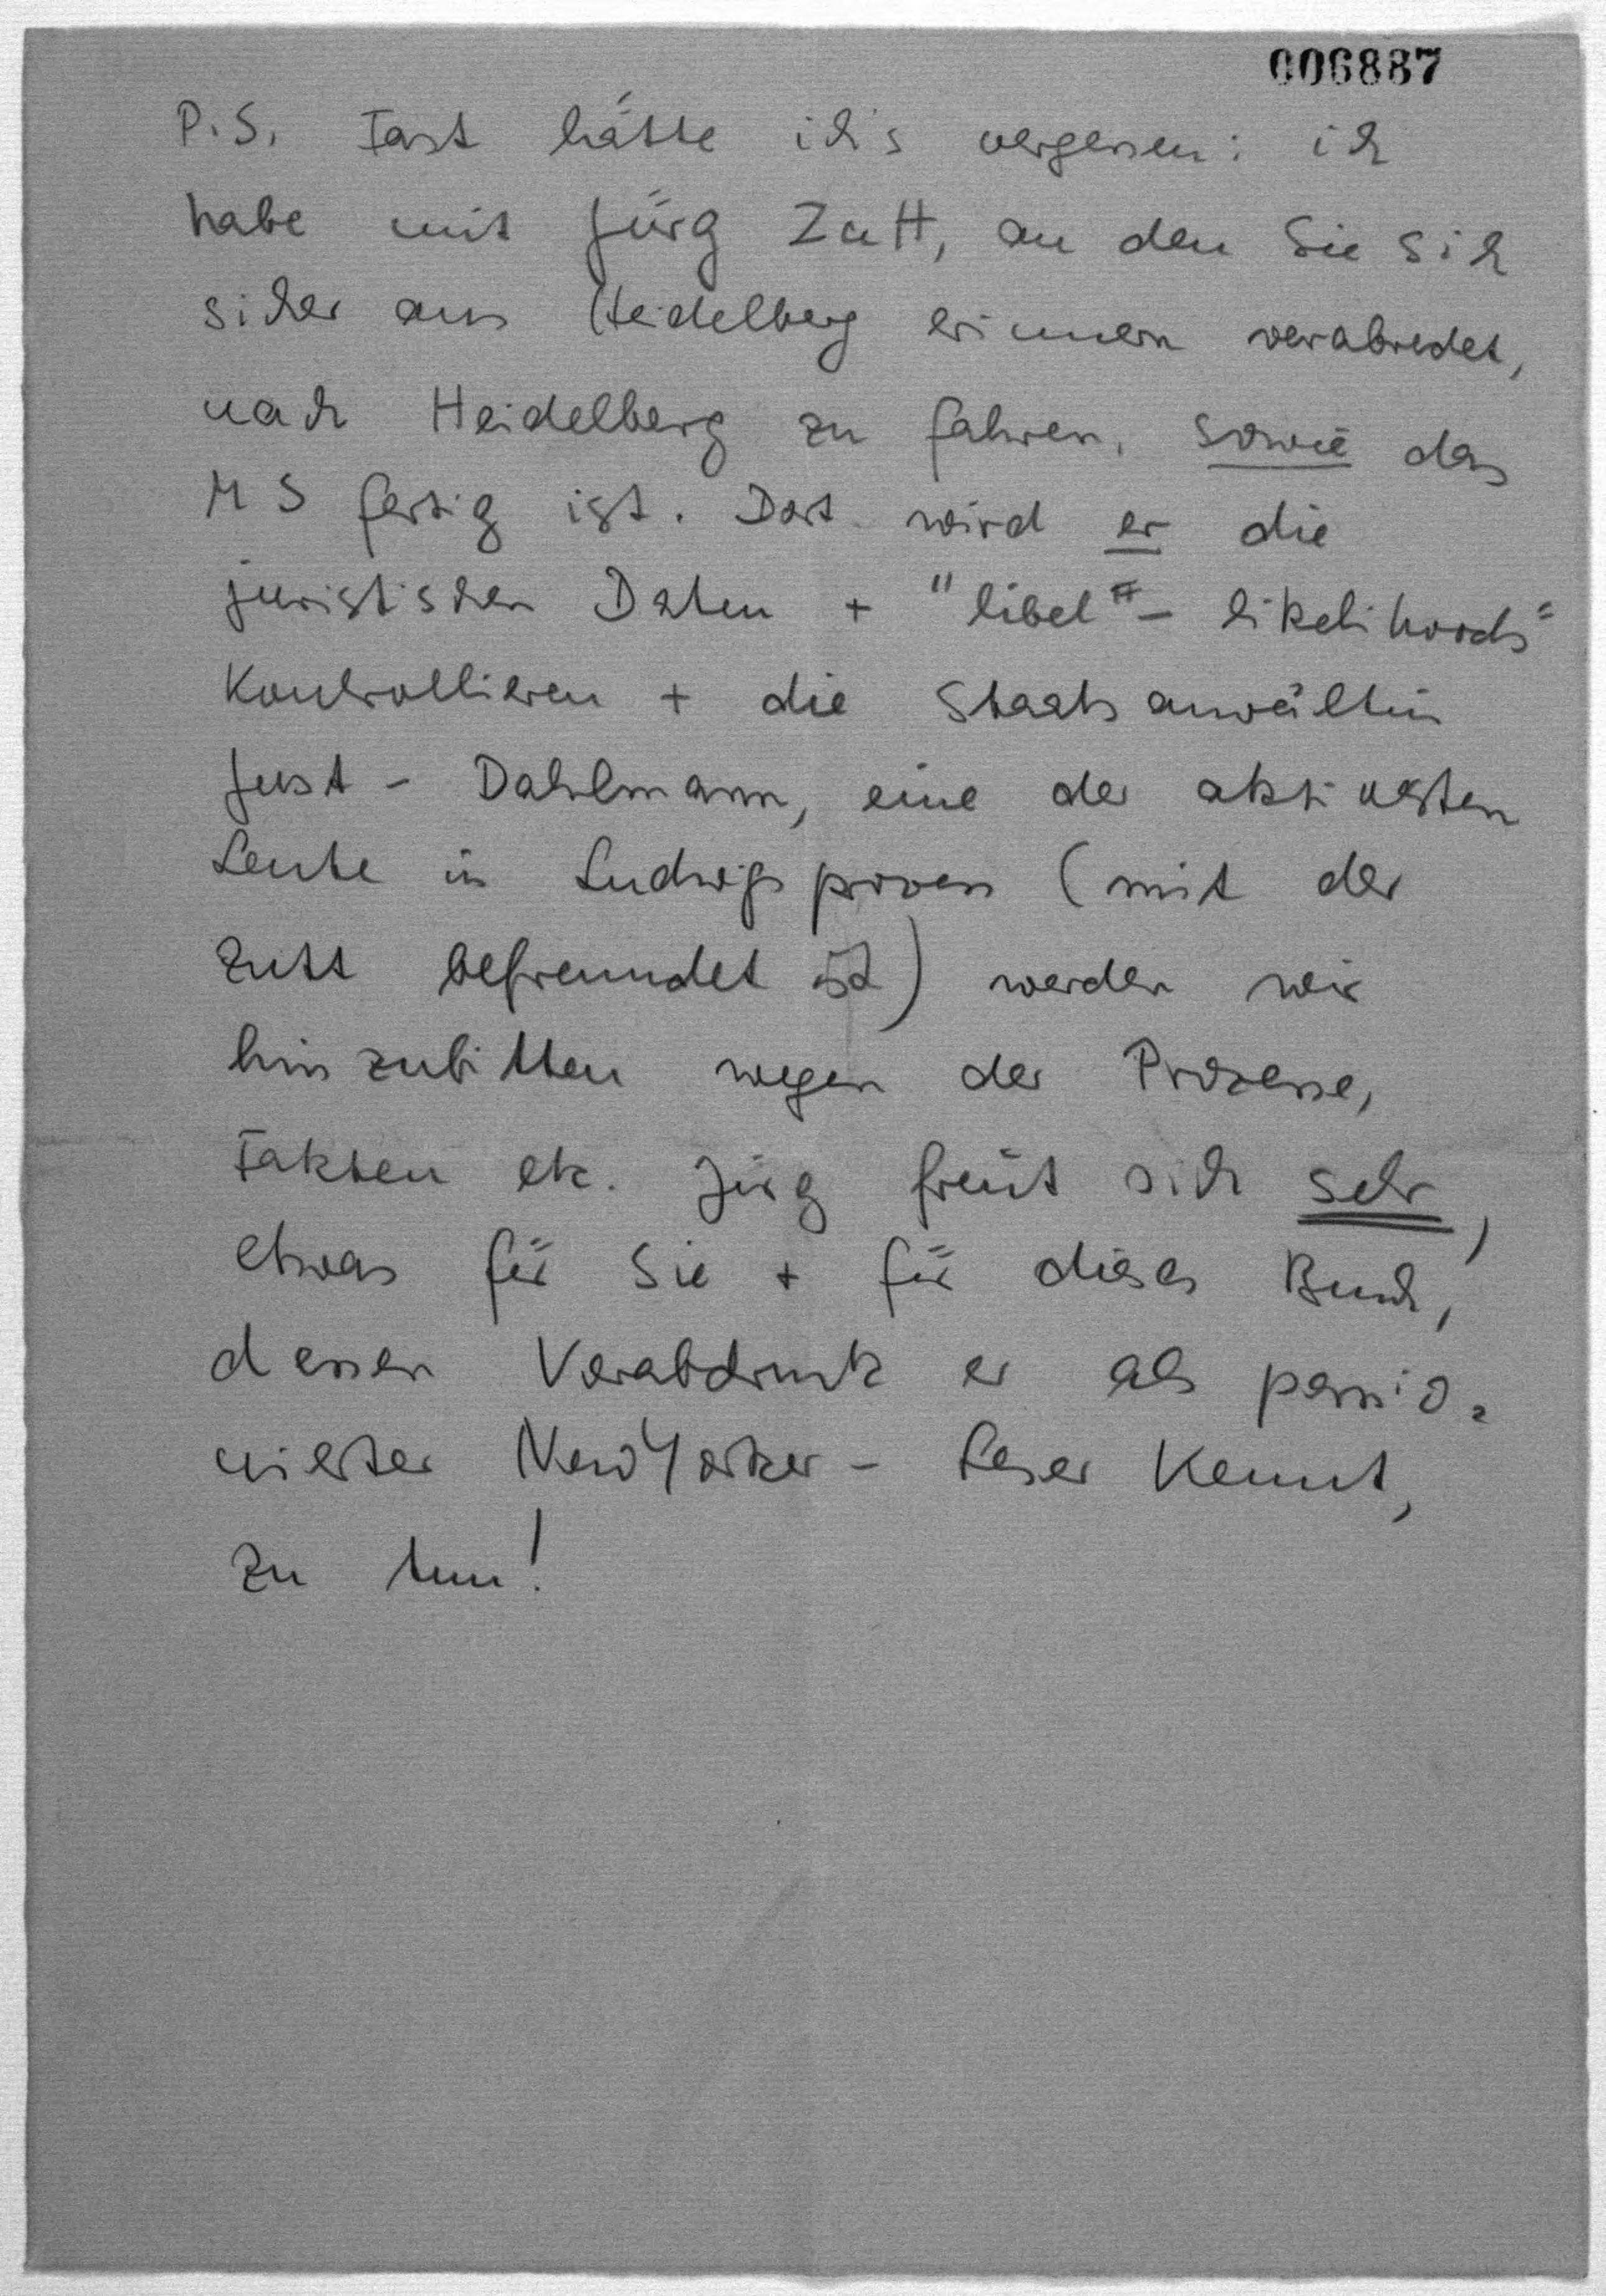 006887
P.S. Fast hätte ich's vergessen: ich
habe mit Jürg Zutt, an den Sie sich
sicher aus Heidelberg erinnern verabredet,
nach Heidelberg zu fahren, sowie das
MS fertig ist. Dort wird er die
juristischen Daten + "libel"- likelihoods"
kontrollieren + die Staatsanwältin
Just - Dahlmann, eine der aktivsten
Leute in Ludwigs (mit der
Zutt befreundet ist) werden wir
hinzubitten wegen der Prozesse,
Fakten etc. Jürg freut sich sehr,
etwas für Sie + für dieses Buch,
dessen Vorabdruck er als passio=
nierter NewYorker - Leser kennt,
zu tun!